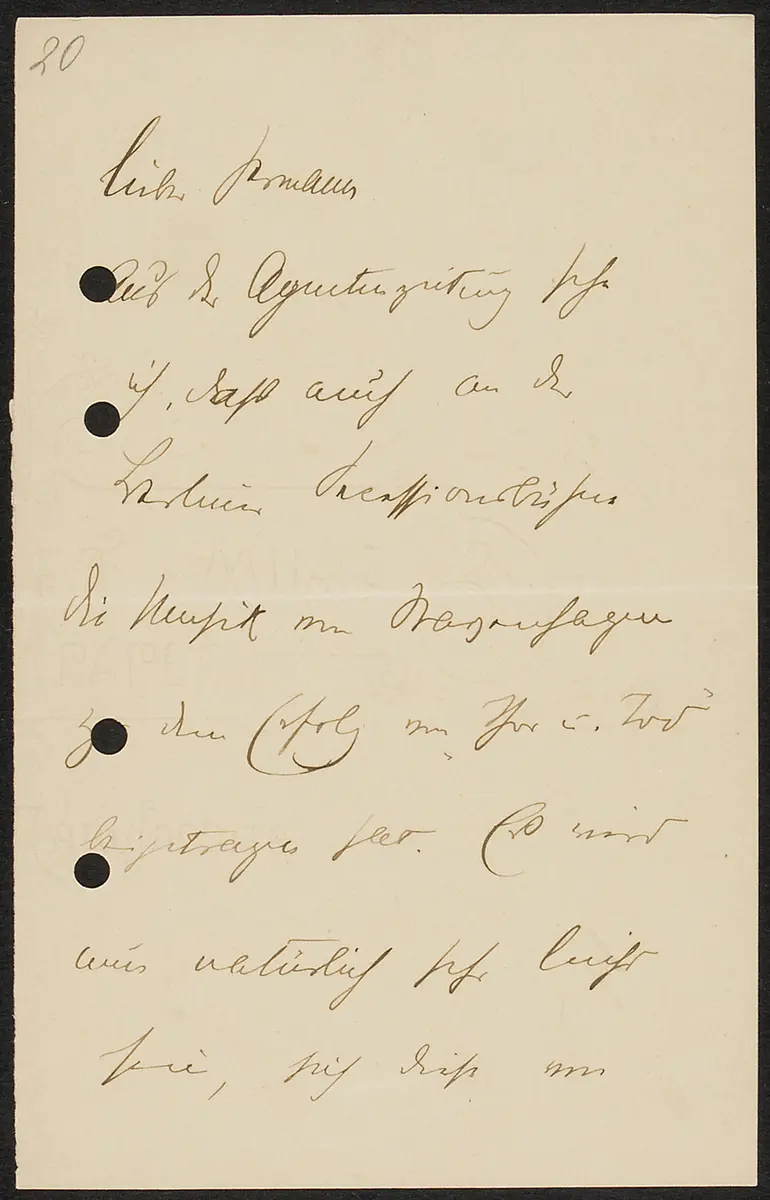 20
Lieber Hermann
Aus der Agentenzeitung sehe
ich, dass auch an der
Berliner Secessionsbühne
die Musik von
zu dem Erfolg von „Thor u. Tod"
beigetragen hat. Es wird
uns natürlich sehr leicht
sein, sich diese von